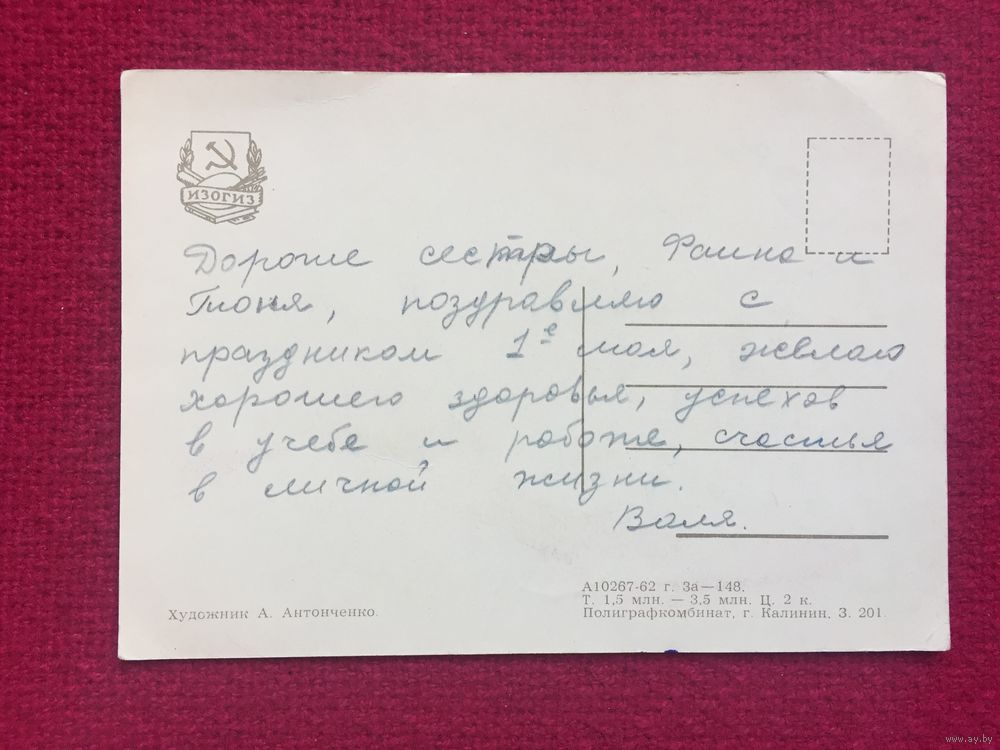 ИЗОГИЗ
Дорогие сестры, Фаина и
Тоня, поздравляю с
праздником 1е мая, желаю
хорошего здоровья, успехов
в учебе и работе, счастья
в личной жизни.
Валя.
Художник А. Антонченко.
А10267-62 г. За—148.
Т. 1,5 млн. — 3,5 млн. Ц. 2 к.
Полиграфкомбинат, г. Калинин. З. 201
www.ay.by